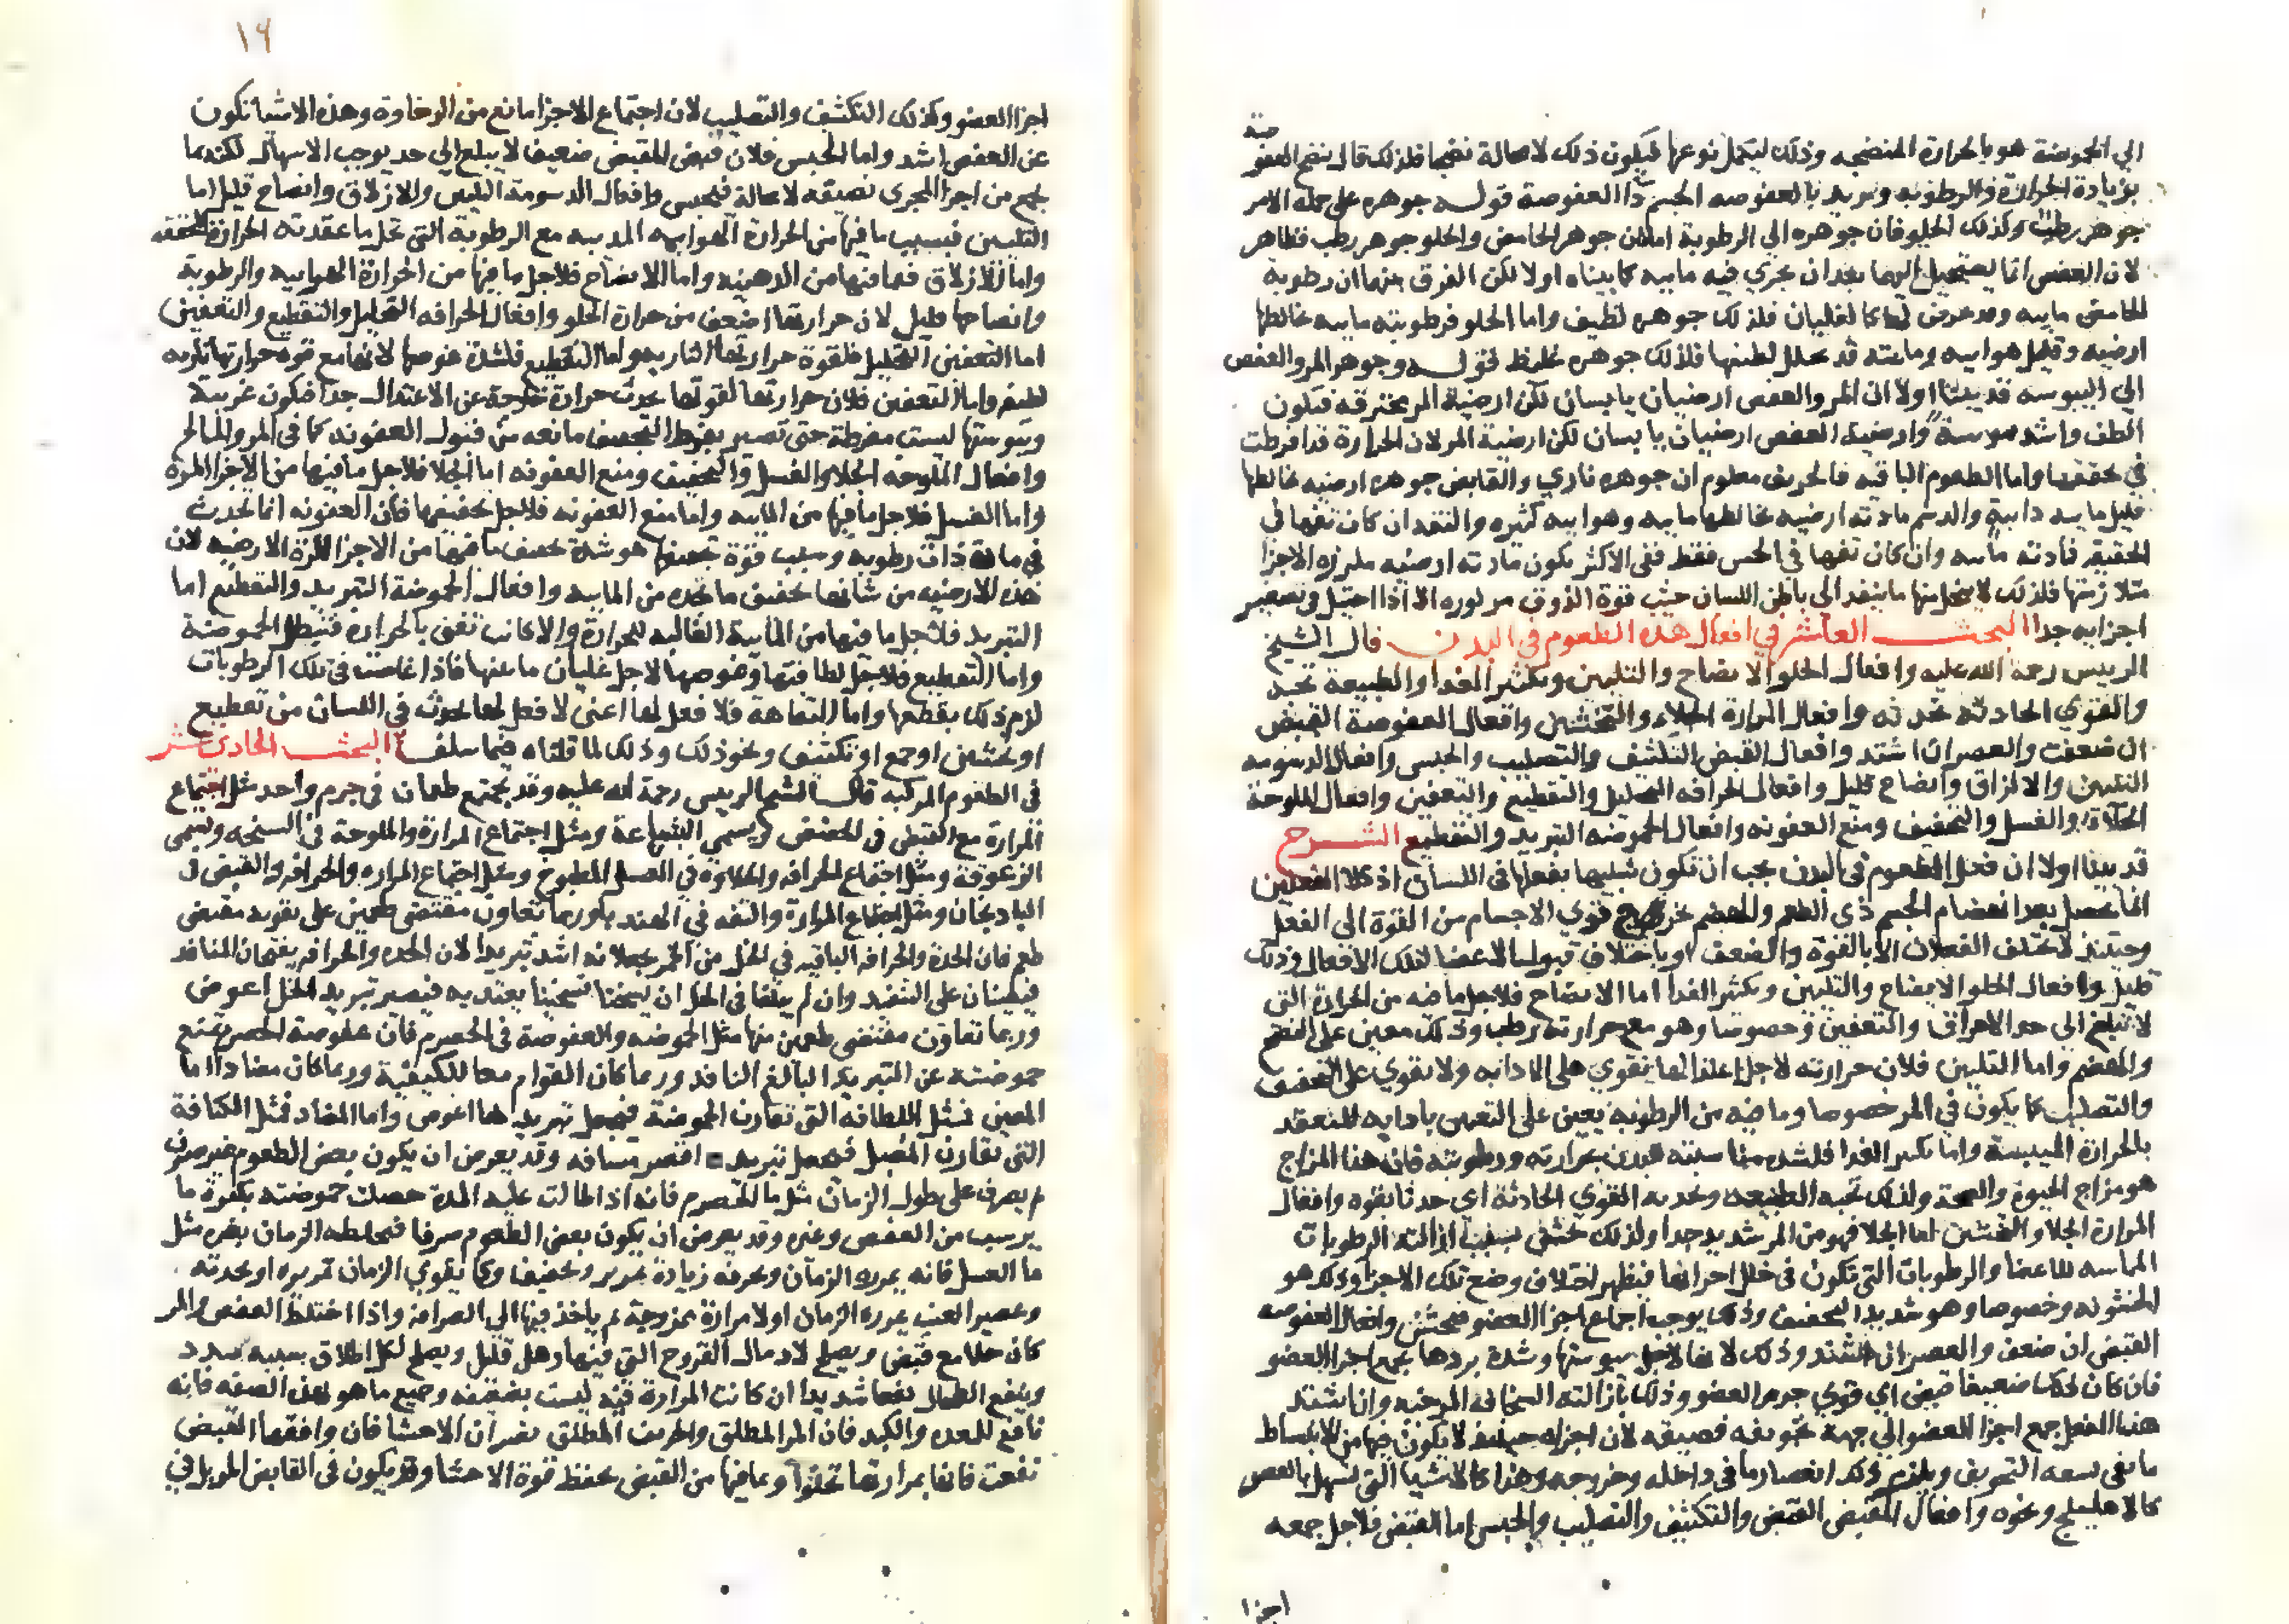 الي الحموضة هو بالحرارة المنضجه وذلك ليتكمل نوعها فيكون ذلك لا محالة نضجا فلذلك قال ينضج العفو
صه
بزيادة الحرارة والرطوبه ويريد بالعفوصه الجسم ذا العفوصة قولـه جوهره علي حمله الامر
جوهر رطب وكذلك الحلو فان جوهره الي الرطوبة اما ان جوهر الحامض والحلو جوهر رطب فظاهر
لان العفص انما يستحيل اليهما بعد ان يجري فيه مايه كما بيناه اولا لكن الفرق بينهما ان رطوبة
الحامض مايه وقد عرض لها كالغليان فلذلك جوهره لطيف واما الحلو فرطوبته مايه مخالطها
ارضيه وقليل هواييه ومايته قد تحلل لطيفها فلذلك جوهره غليظ قولـه وجوهر المر والعفص
الي اليبوسه قد بينا اولا ان المر والعفص ارضيان يابسان لكن ارضية المر محترقه فتكون
الطف واشد يبوسة وارضية العفص ارضيان يابسان لكن ارضية المر لان الحرارة قد افرطت
في تجفيفها واما الطعوم الباقيه فالحريف معلوم ان جوهره ناري والقابض جوهره ارضيه مخالطها
قليل مايه دايبة والدسم مادته ارضيه مخالطها مايه وهواييه كثيره والتفه ان كان تفها في
الحقيقه فمادته مايه وان كان تفها في الحس فقط ففي الاكثر يكون مادته ارضيه ملززه الاجزا
متلازمتها فلذلك لا يتحلل منها ما ينفد الي باطن اللسان حيث قوة الذوق الا اذا احتيل في تصغير
اجزايه جدا البحث العاشر في افعال هذه الطعوم في البدن قال الشيخ
الرييس رحمة الله عليه وافعال الحلو الانضاج والتليين ويكثر الغدا والطبيعة تحبه
والقوي الجاذبة تجذبه وافعال المرارة الجلاء والتخشين وافعال العفوصة القبض
ان ضعفت والعصر ان اشتد وافعال القبض التكثف والتصليب والحبس وافعال الدسومه
التليين والازلاق وانضاج قليل وافعال الحرافه التحليل والتقطيع والتعفين وافعال الملوحة
الجلاء والغسل والتجفيف ومنع العفونه وافعال الحموضه التبريد والتقطيع الشـرح
قد بينا اولا ان فعل الطعوم في البدن يجب ان تكون شبيها بفعلها في اللسان اذ كلا الفعلين
انما يحصل بعد انهضام الجسم ذي الطعم والهضم يخرج قوي الاجسام من القوة الي الفعل
وحينيذ لا تختلف الفعلان الا بالقوة والضعف او باختلاف قبول الاعضا لتلك الافعال وذلك
قليل وافعال الحلو الانضاج والتليين ويكثر الغدا اما الانضاج فلاجل ما فيه من الحرارة التي
لا تبلغ الي حد الاحراق والتعفين وخصوصا وهو مع حرارته رطب وذلك معين علي النضج
والهضم واما التليين فلان حرارته لاجل اعتدالها يقوي علي الاذابه ولا يقوي علي التجفيف
والتصليب كما يكون في المر خصوصا وما فيه من الرطوبه يعين علي التليين باذابه المنعقد
بالحرارة الميبسة واما تكثير الغدا فلشدة مناسبته للبدن بحرارته ورطوبته فان هذا المزاج
هو مزاج الحيوة والصحة ولذلك تحبه الطبيعه وتجذبه القوي الجاذبة اي جذبا بقوه وافعال
المرارة الجلا والتخشين اما الجلا فهو من المر شديد جدا ولذلك تخشن بسبب ازالته الرطوبات
المماسه للاعضا والرطوبات التي تكون في خلل اجزايها فيظهر اختلاف وضع تلك الاجزا وذلك هو
الخشونه وخصوصا وهو شديد التجفيف وذلك يوجب اجماع اجزا العضو فيخشن وافعال العفوصه
القبض ان ضعف والعصر ان اشتد وذلك لانها لاجل يبوستها وشدة بردها يجمع اجزا العضو
فان كان ذلك ضعيفا قبض اي قوي جرم العضو وذلك بازالته السخافه المرخيه وان اشتد
هذا الفعل جمع اجزا العضو الي جهة تجويفه فضيقه لان اجزاه حينيذ لا يكون فيها من الانبساط
ما يفي بسعه التجويف ويلزم ذلك انعصار ما في داخله وخروجه وهذا كالاشيا التي تسهل بالعصر
كالاهليلج ونحوه وافعال القبض القبض والتكثيف والتصليب والحبس اما القبض فلاجل جمعه
اجزا
١٩
اجزا العضو وكذلك التكثيف والتصليب لان اجتماع الاجزا مانع من الرخاوة وهذه الاشيا تكون
عن العفص اشد واما الحبس فلان قبض القبض ضعيف لا يبلغ الي حد يوجب الاسهال لكنه بما
يجمع من اجزا المجري تضيقه لا محالة فيحبس وافعال الدسومة التليين والازلاق وانضاج قليل اما
التليين فبسبب ما فيها من الحرارة الهواييه المذيبه مع الرطوبة التي تحل ما عقدته الحرارة المجففه
واما الازلاق فبما فيها من الدهنيه واما الانضاج فلاجل ما فيها من الحرارة الهواييه والرطوبة
وانضاجها قليل لان حرارتها اضعف من حرارة الحلو وافعال الحرافه التحليل والتقطيع والتعفين
اما التعفين التحليل فلقوة حرارتها الناريه واما التقطيع فلشدة غوصها لانها مع قوة حرارتها ناريه
لطيفه واما التعفين فلان حرارتها لقوتها يحدث حرارة خارجة عن الاعتدال جدا فتكون غريبة
ويبوستها ليست مفرطة حتي تصير بفرط التجفيف مانعه من قبول العفونه كما في المر والمالح
وافعال الملوحه الجلا والغسل والتجفيف ومنع العفونه اما الجلا فلاجل ما فيها من الاجزا المرة
واما الغسل فلاجل ما فيها من المايه واما منع العفونه فلاجل تجفيفها فان العفونه انما تحدث
في مادة ذات رطوبه وسبب قوة تجفيفها هو شدة تجفيف ما فيها من الاجزا المرة الارضيه لان
هذه الارضيه من شانها تجفيف ما تجده من المايه وافعال الحموضة التبريد والتقطيع اما
التبريد فلاجل ما فيها من المايية الغالبه للحرارة والا كانت تعفن بالحرارة فتبطل الحموضة
واما التقطيع فلاجل لطافتها وغوصها لاجل غليان مايتها فاذا غاصت في تلك الرطوبات
لزم ذلك تقطعها واما التفاهة فلا فعل لها اعني لا فعل لها يحدث في اللسان من تقطيع
او تخشين او جمع او تكثيف ونحو ذلك وذلك لما قلناه فيما سلف البحث الحادي عشر
في الطعوم المركبه قال الشيخ الرييس رحمة الله عليه وقد يجتمع طعمان في جرم واحد مثل اجتماع
المرارة مع القبض في الحضض ويسمي البشاعة ومثل اجتماع المرارة والملوحة في السبخه ويسمي
الزعوقة ومثل اجتماع الحرافه والحلاوة في العسل المطبوخ ومثل اجتماع المراره والحرافه والقبض في
الباذنجان ومثل اجتماع المرارة والتفه في الهندبا وربما تعاون مقتضي طعمين علي تقويه مقتضي
طعم فان الحدة والحرافه الباقيه في الخل من الخمر يجعلانه اشد تبريدا لان الحده والحرافه يفتحان المنافذ
فيعينان علي التنفيذ وان لم يبلغا في الخل ان يسخنا تسخينا يعتد به فيصير تبريد الخل اغوص
وربما تعاون مقتضي طعمين منها مثل الحموضه والعفوصة في الحصرم فان عفوصة الحصرم تمنع
حموضته عن التبريد البالغ النافذ وربما كان القوام معا للكيفية وربما كان مضادا اما
المعين فمثل اللطافه التي تقارن الحموضة فيجعل تبريدها اغوص واما المضاد فمثل الكثافة
التي تقارن الخل فيجعل تبريده اقصر مسافه وقد يعرض ان يكون بعض الطعوم غير صرف
ثم يصرف علي طول الزمان مثل ما الحصرم فانه اذا طالت عليه المدة حصلت حموضته بكثرة ما
يرسب من العفص وغيره وقد يعرض ان يكون بعض الطعوم صرفا فيخلطه الزمان بغيره مثل
ما العسل فانه يمرره الزمان ويحرفه زيادة تمرير وتجفيف وكما يقوي الزمان تمريره او حدته
وعصير العنب يمرره الزمان اولا مرارة ممزوجة ثم ياخذ فيها الي الصرافة واذا اختلط العفص والمر
كان جلا مع قبض ويصلح لادمال القروح التي فيها رهل قليل ويصلح لكل اطلاق سببه سدد
وينفع الطحال نفعا شديدا ان كانت المرارة فيه ليست بضعيفه وجميع ما هو بهذه الصفه فانه
نافع للمعده والكبد فان المر المطلق والحريف المطلق يضران الاحشا فان وافقها القبض
نفعت فانها بمرارتها تجلوا وبما فيها من القبض تحفظ قوة الاحشا وقد يكون في القابض المر بل في